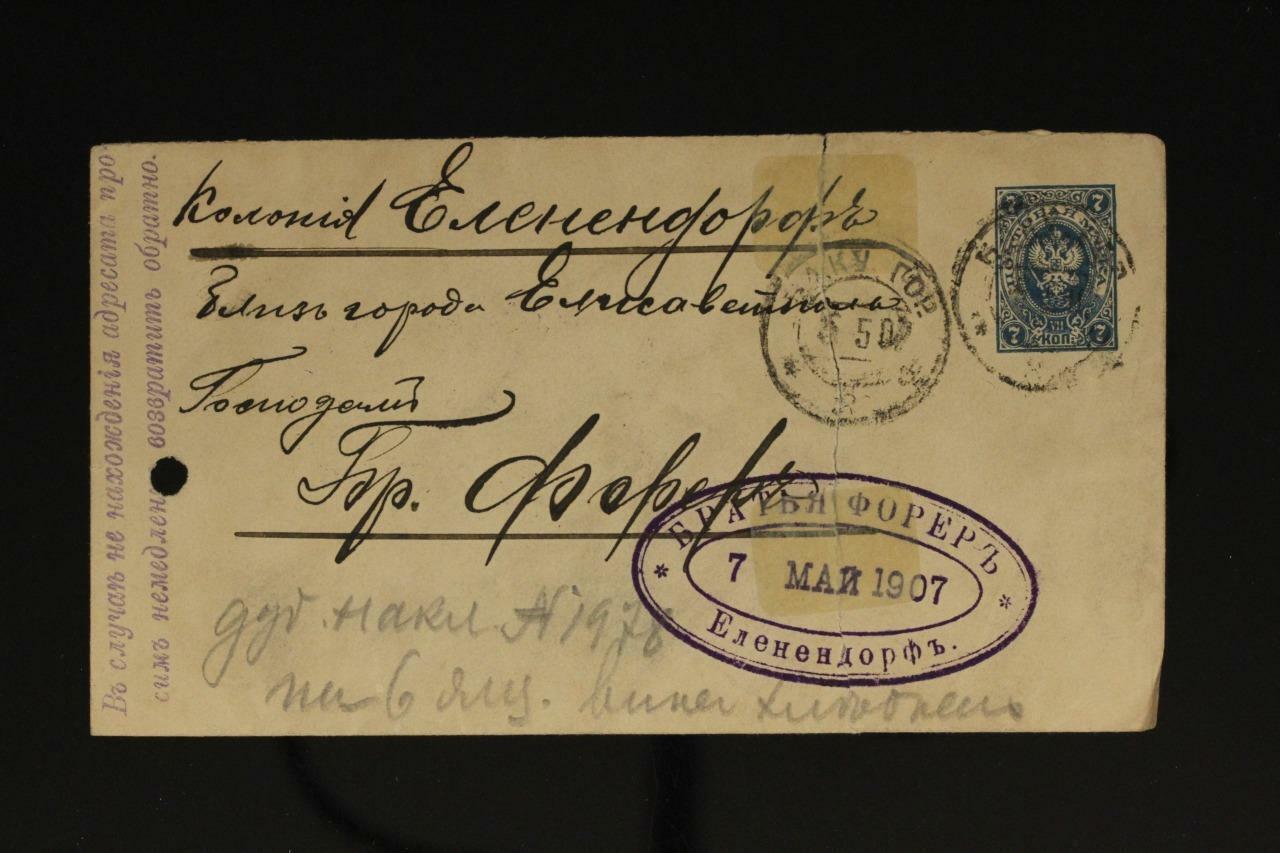 Въ случаѣ не нахожденія адресата про-
симъ немедленно возвратить обратно.
Колонія Елененндорфъ
Близъ города Елисаветполь
Господамъ
Бр. Фореръ
ПОЧТОВАЯ МАРКА
7 7
7 VII 7
КОП.
БАКУ ГОР.
50
БРАТЬЯ ФОРЕРЪ
7 МАЙ 1907
Еленендорфъ.
дуб. накл. № 1978
на 6 ящ. вина